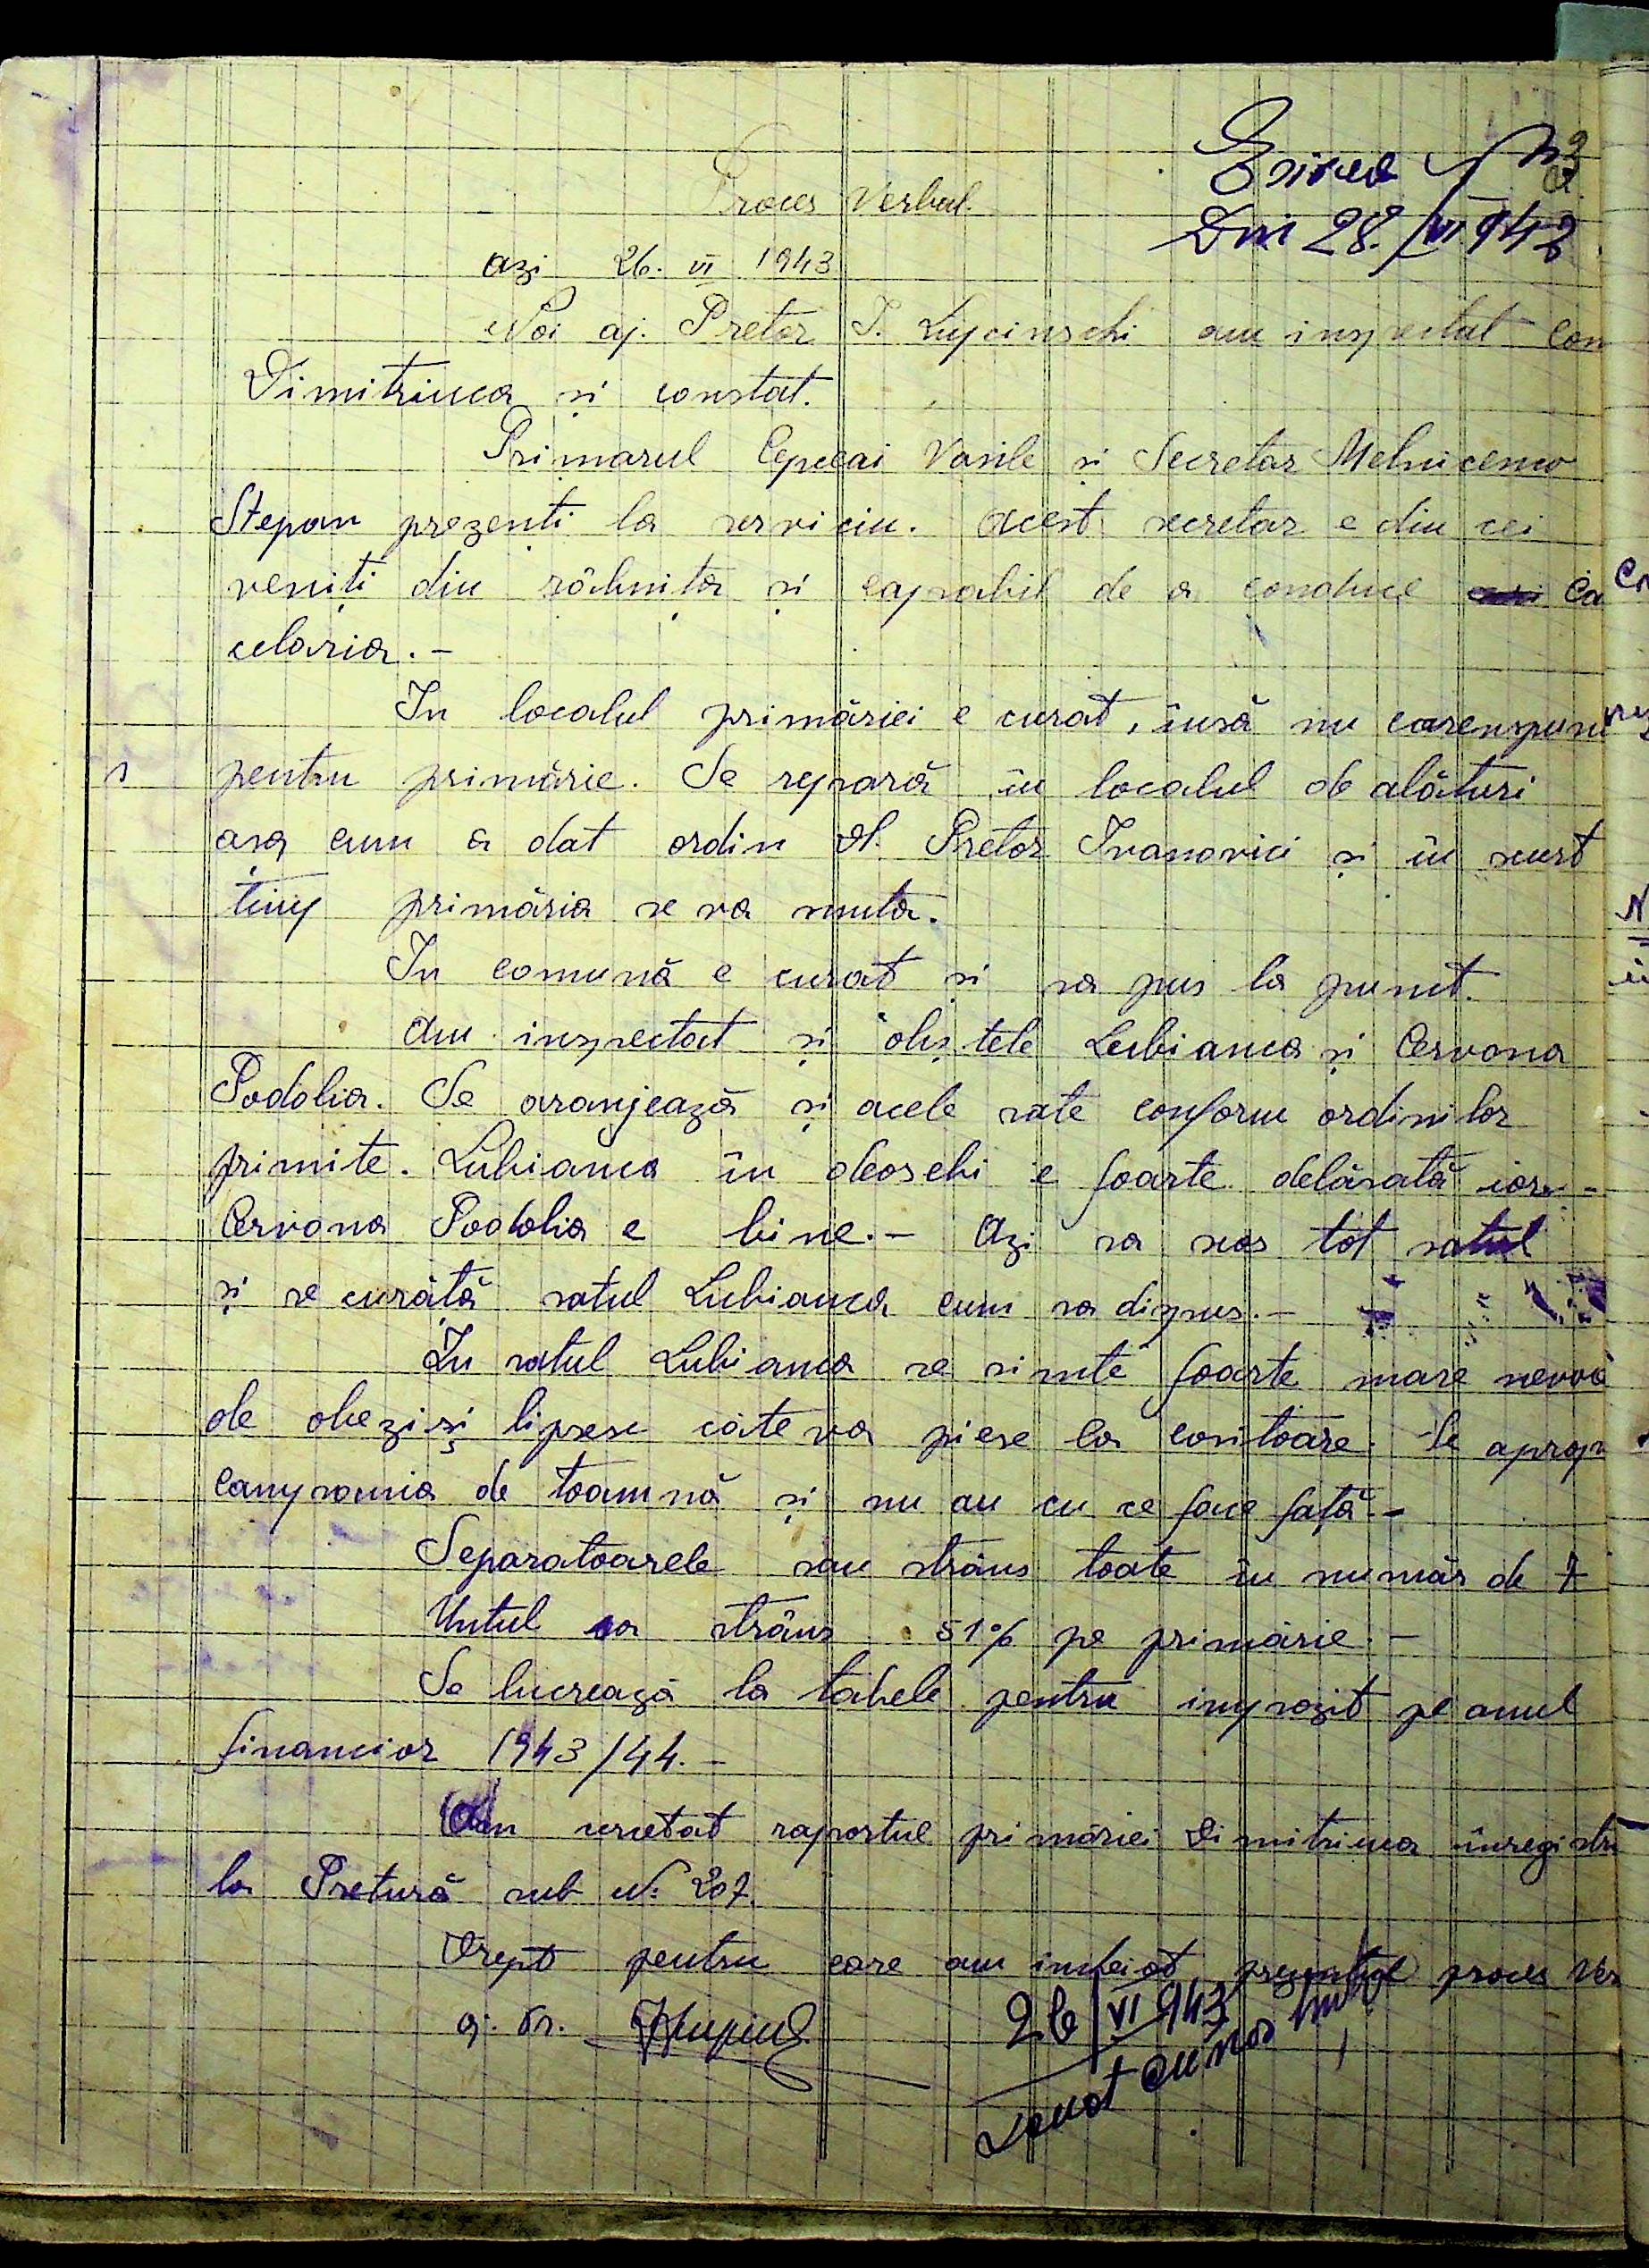 Proces Verbal.
Din 28./VI 943
azi 26. VI 1943
Noi aj. Pretor I. Lupcinschi am inspectat com
Dimitriuca și constat.
Primarul Cepeeai Vasile și Secretar Melnicenco
Stepan prezenți la serviciu. Acest secretar e din cei
veniți din râbnița și capabil de a conduce ca
celaria.-
In localul primăriei e curat, însă nu corenspun
pentru primărie. Se repară în localul de alături
așa cum a dat ordin dl. Pretor Ivanovici și în scurt
timp primăria se va muta.
In comună e curat și sa pus la punct.
Am inspectat și obștele Lubianca și Cervona
Podolia. Se aranjează și acele sate conform ordinilor
primite. Lubianca în deosebi e foarte delăsată iar -
Cervona Podolia e bine.- Azi sa scos tot satul
și se curăță satul Lubianca cum sa dispus.-
In satul Lubianca se simte foarte mare nevoe
de obezi și lipsesc câte va piese la cositoare. Se aprop
campania de toamnă și nu au cu ce face față.-
Separatoarele sau strâns toate în număr de 7
Untul sa strâns 51% pe primărie.-
Se lucrează la tabele pentru impozit pe anul
financiar 1943/44.-
Am cercetat raportul primăriei Dimitriuca înregistra
la Pretură sub No. 207.
Drept pentru care am încheiat prezentul proces ver
aj. Pr.
26/VI 943
Luat cunoș